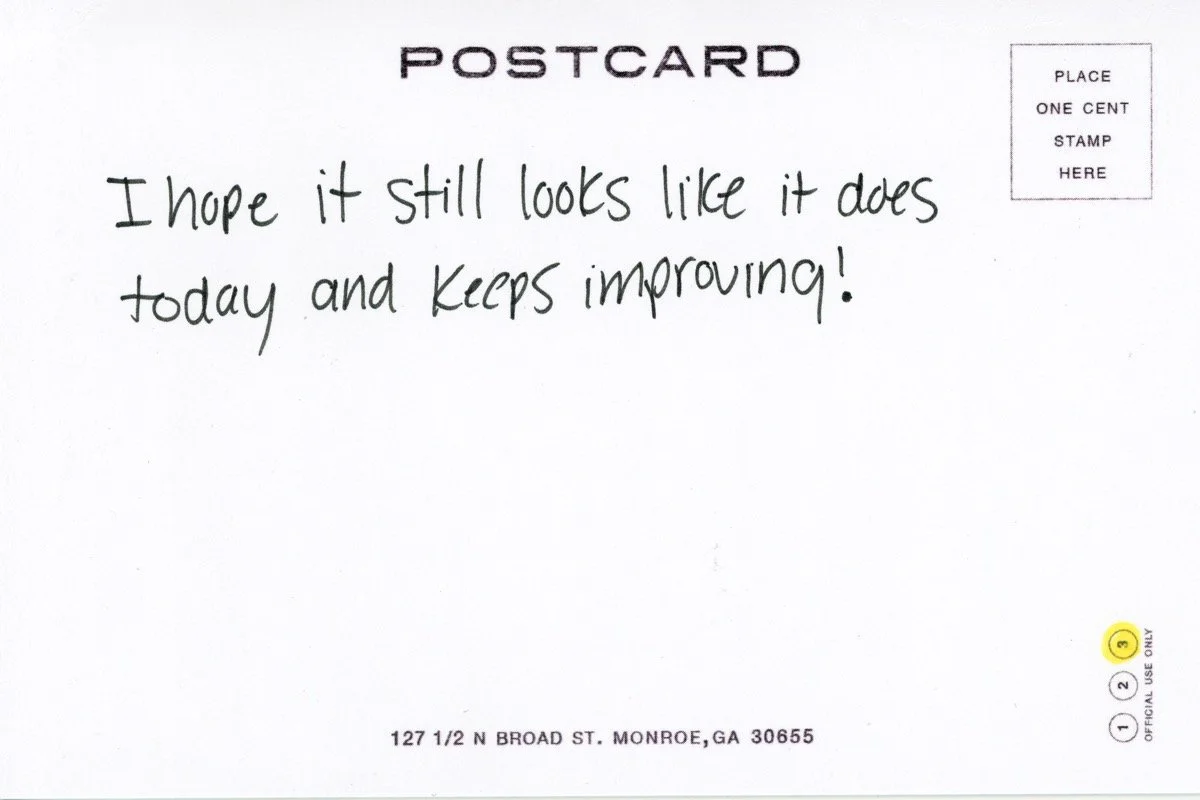 POSTCARD
PLACE
ONE CENT
STAMP
HERE
I hope it still looks like it does
today and keeps improving!
1 2 3
OFFICIAL USE ONLY
127 1/2 N BROAD ST. MONROE,GA 30655